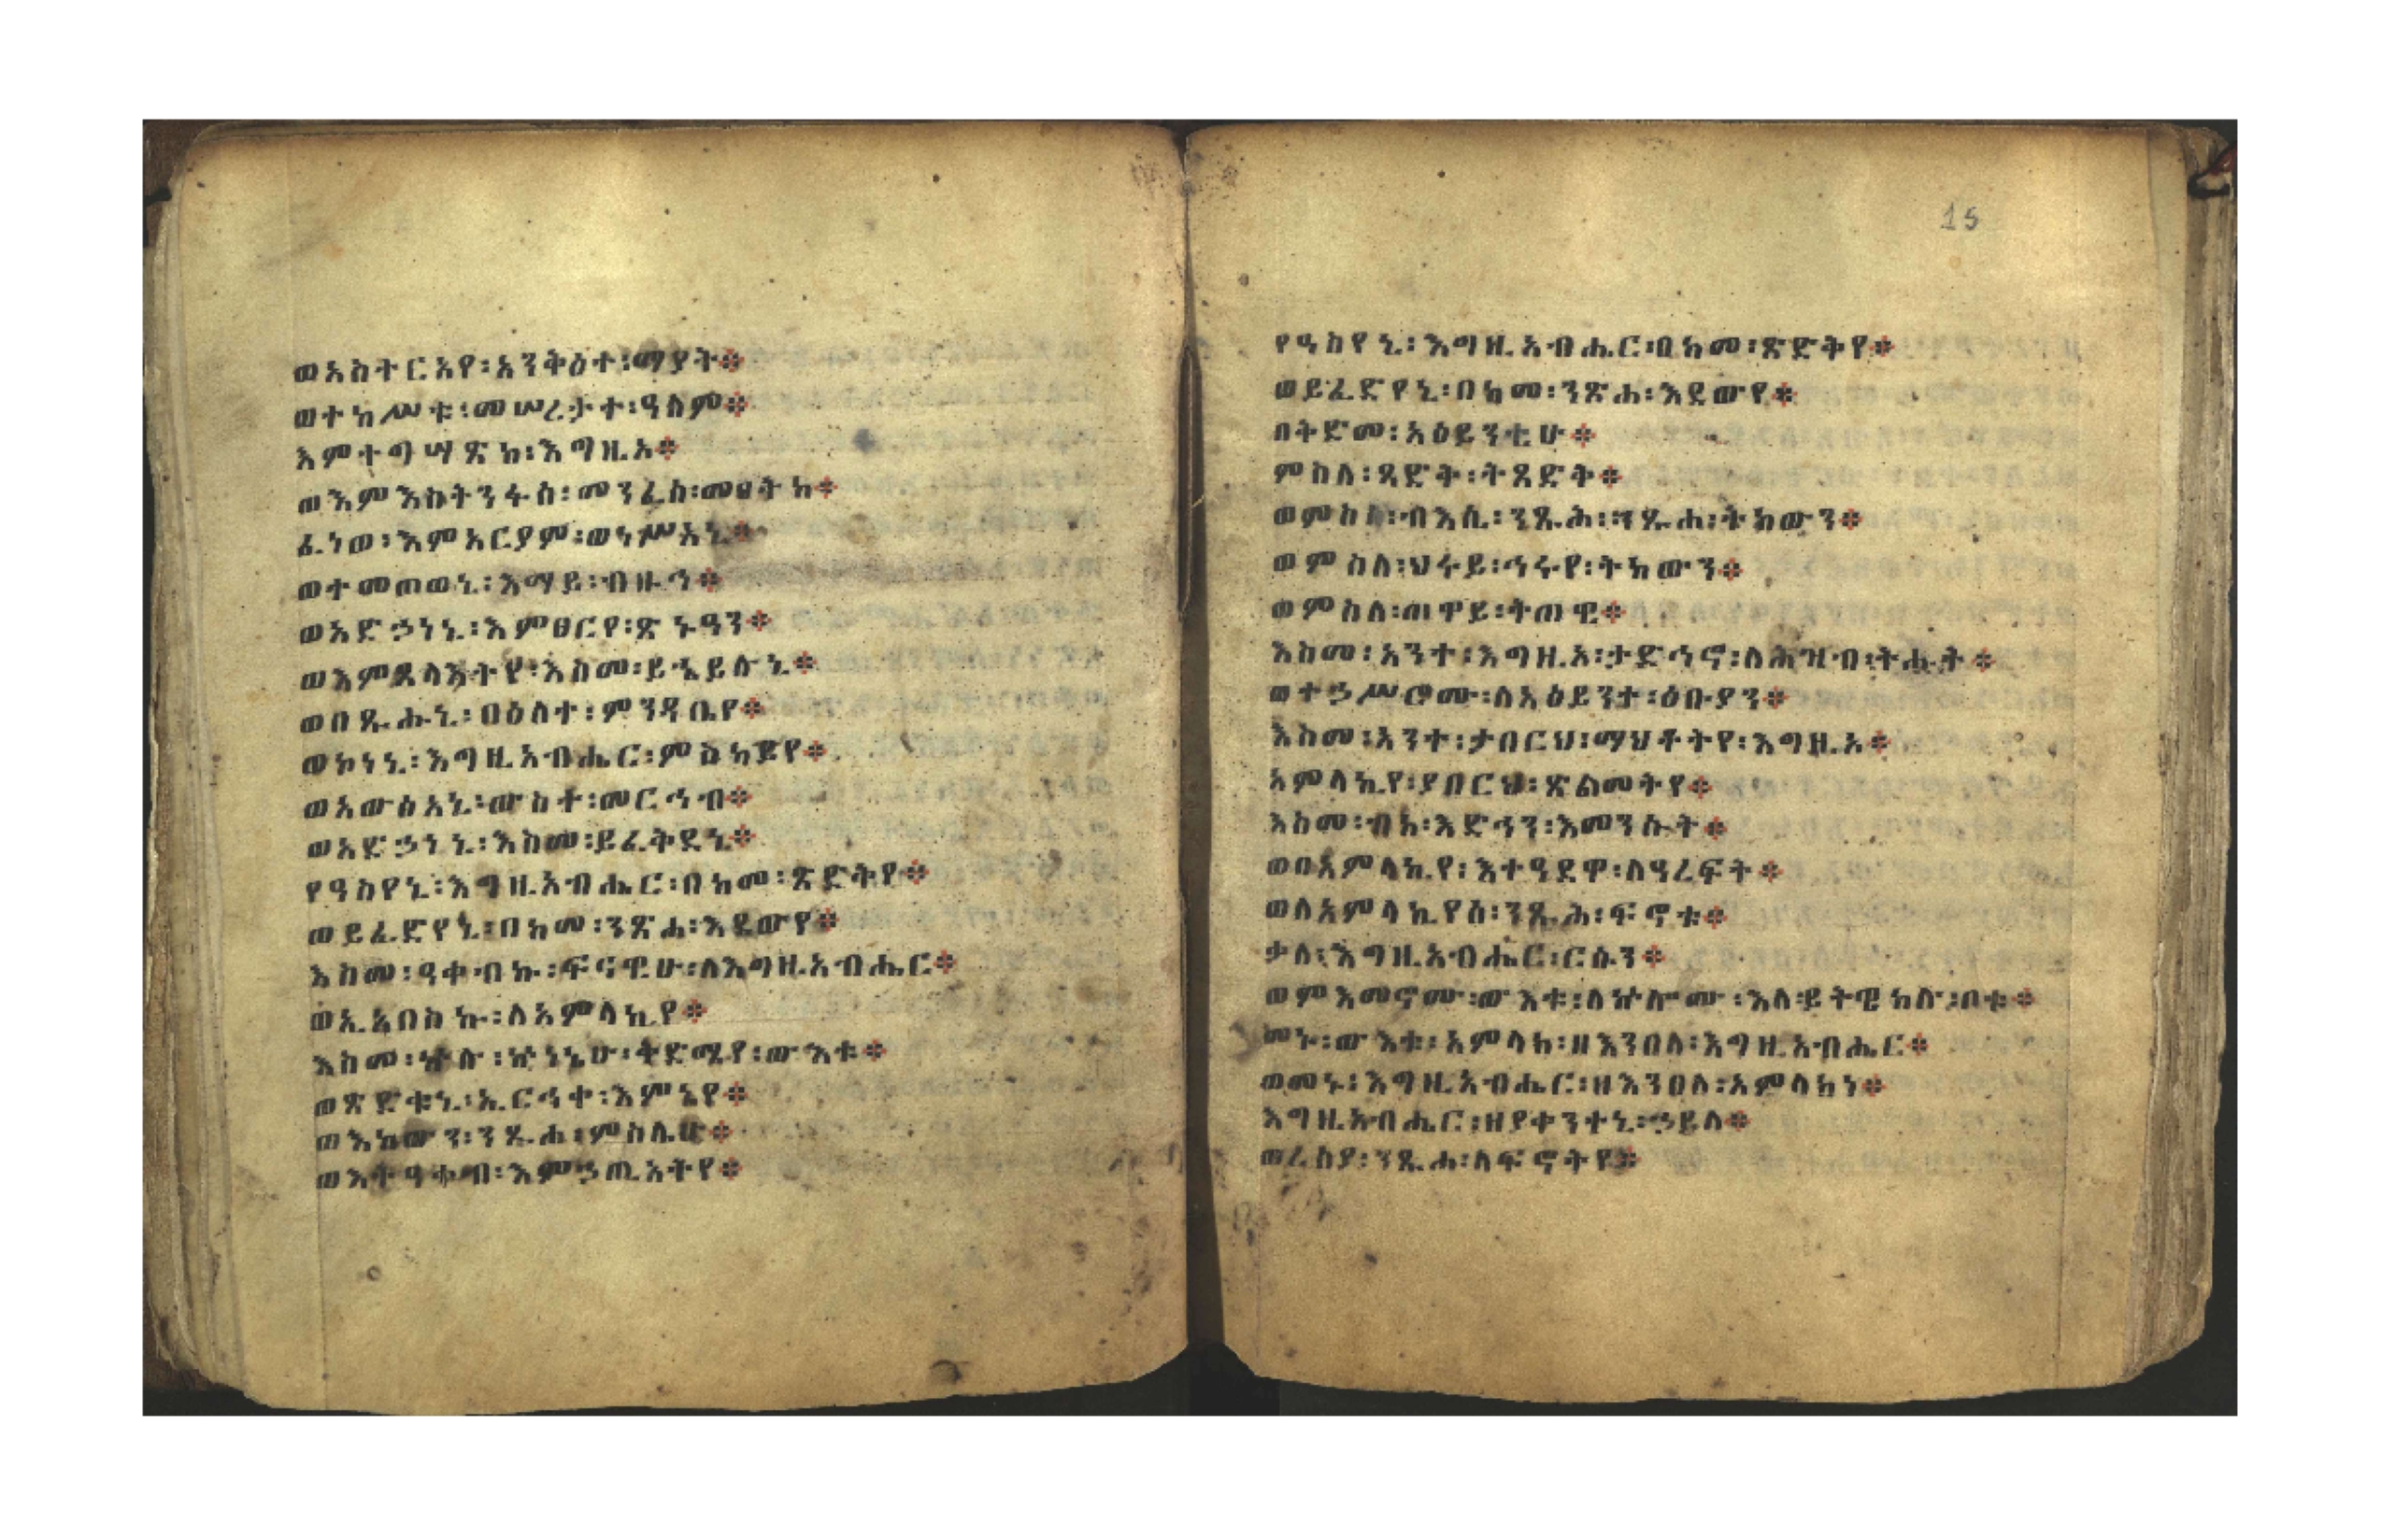 ወአስተርአየ፡አንቅዕተ፡ማያት፨
ወተከሥቱ፡መሠረታተ፡ዓለም፨
እምተግሣጽከ፡እግዚአ፨
ወእምእስትንፋስ፡መንፈስ፡መዐትከ፨
ፈነወ፡እምአርያም፡ወነሥአኒ፨
ወተመጠወኒ፡እማይ፡ብዙኅ፨
ወአድኃነኒ፡እምፀርየ፡ጽኑዓን፨
ወእምጸላእትየ፡እስመ፡ይኄይሉኒ፨
ወበጹሑኒ፡በዕለተ፡ምንዳቤየ፨
ወኮነኒ፡እግዚአብሔር፡ምስካይየ፨
ወአውፅአኒ፡ውስተ፡መርኅብ፨
ወአድኃነኒ፡እስመ፡ይፈቅደኒ፨
የዓስየኒ፡እግዚአብሔር፡በከመ፡ጽድቅየ፨
ወይፈድየኒ፡በከመ፡ንጽሐ፡እደውየ፨
እስመ፡ዓቀብኩ፡ፍናዊሁ፡ለእግዚአብሔር፨
ወኢአበስኩ፡ለአምላኪየ፨
እስመ፡ኵሉ፡ኵነኔሁ፡ቅድሜየ፡ውእቱ፨
ወጽድቁኒ፡ኢርኅቀ፡እምኔየ፨
ወእከውን፡ንጹሐ፡ምስሌሁ፨
ወእትዓቀብ፡እምኃጢአትየ፨
የዓስየኒ፡እግዚአብሔር፡በከመ፡ጽድቅየ፨
ወይፈድየኒ፡በከመ፡ንጽሐ፡እደውየ፨
በቅድመ፡አዕይንቲሁ፨
ምስለ፡ጻድቅ፡ትጸድቅ፨
ወምስለ፡ብእሲ፡ንጹሕ፡ንጹሐ፡ትከውን፨
ወምስለ፡ህሩይ፡ኅሩየ፡ትከውን፨
ወምስለ፡ጠዋይ፡ትጠዊ፨
እስመ፡አንተ፡እግዚአ፡ታድኅኖ፡ለሕዝብ፡ትሑት፨
ወተኃሥሮሙ፡ለአዕይንተ፡ዕቡያን፨
እስመ፡አንተ፡ታበርህ፡ማህቶትየ፡እግዚአ፨
አምላኪየ፡ያበርህ፡ጽልመትየ፨
እስመ፡ብከ፡እድኅን፡እመንሱት፨
ወበአምላኪየ፡እተዓደዋ፡ለዓረፍት፨
ወለአምላኪየሰ፡ንጹሕ፡ፍኖቱ፨
ቃለ፡እግዚአብሔር፡ርሱን፨
ወምእመኖሙ፡ውእቱ፡ለኵሎሙ፡እለ፡ይትዌከሉ፡ቦቱ፨
መኑ፡ውእቱ፡አምላክ፡ዘእንበለ፡እግዚአብሔር፨
ወመኑ፡እግዚአብሔር፡ዘእንበለ፡አምላክነ፨
እግዚአብሔር፡ዘያቀንተኒ፡ኃይለ፨
ወረስያ፡ንጹሐ፡ለፍኖትየ፨
15